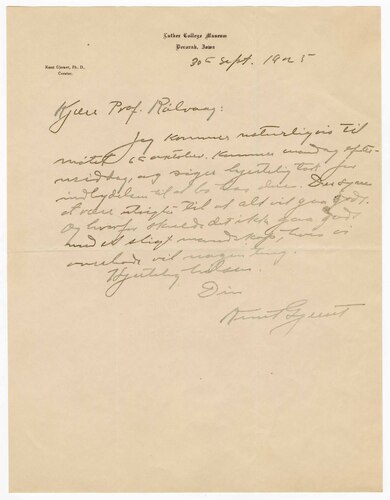 Luther College Museum
Decorah, Iowa
Knut Gjerset, Ph. D.,
Curator.
30 Sept. 1925
Kjære Prof. Rölvaag:
Jeg kommer naturligvis til
mötet oktober. Kommer mandag efter-
middag, og siger hjertelig tak for
indbydelsen til at bo hos dere.
til at alt vil gaa godt.
Og hvorfor skulde det ikke gaa godt
med et sligt mandskap,
vil
Hjertelig hilsen.
Din
Knut Gjerset